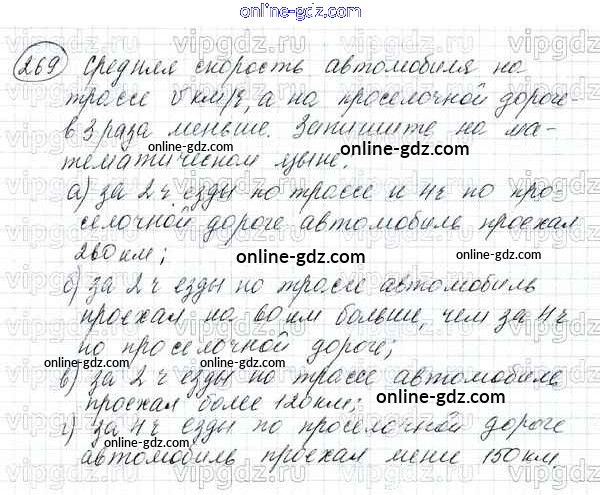 online-gdz.com
269 Средняя скорость автомобиля на
трассе v км/ч, а на проселочной дороге -
в 3 раза меньше. Запишите на ма-
online-gdz.com
тематическом языке:
а) за 2 ч езды по трассе и 4 ч по про-
селочной дороге автомобиль проехал
260 км;
online-gdz.com online-gdz.com
б) за 2 ч езды по трассе автомобиль
проехал на 60 км больше, чем за 4 ч
по проселочной дороге;
online-gdz.com online-gdz.com
в) за 2 ч езды по трассе автомобиль
проехал более 120 км;
online-gdz.com online-gdz.com
г) за 4 ч езды по проселочной дороге
online-gdz.com
автомобиль проехал мене 150 км.